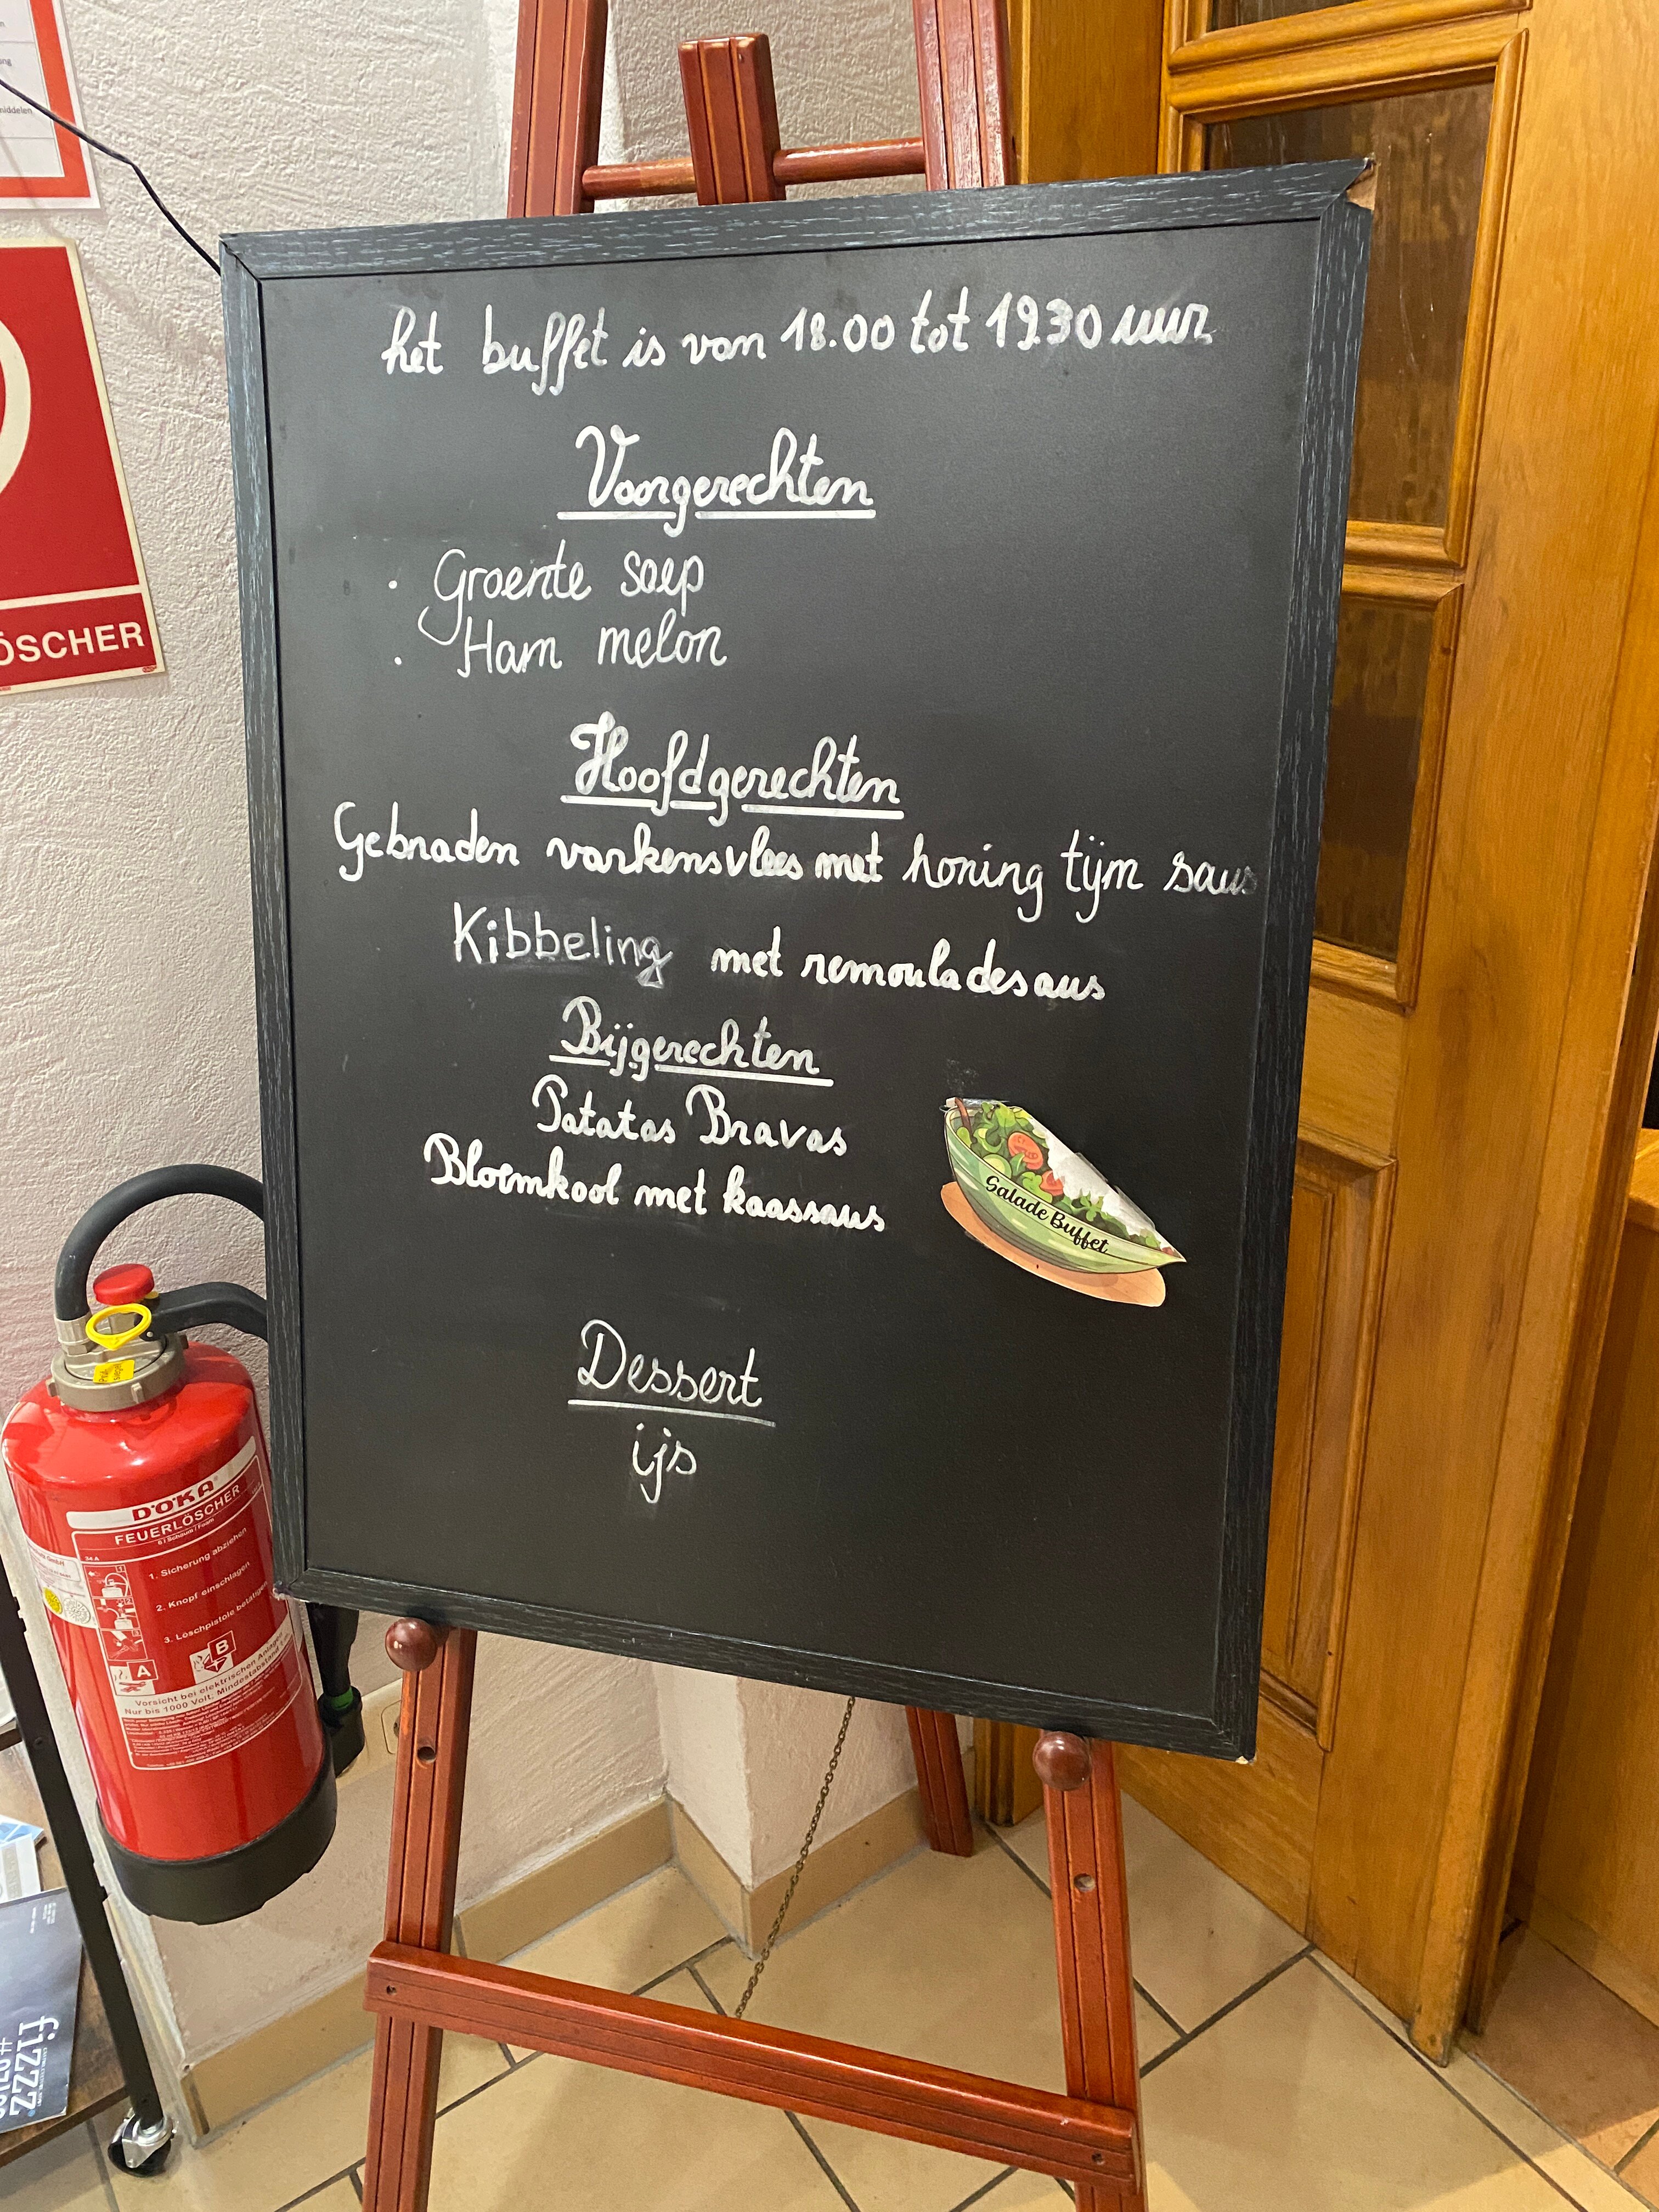 het buffet is van 18.00 tot 1930 uur
Voorgerechten
· Groente soep
· Ham melon
Hoofdgerechten
Gebraden varkensvlees met honing tijm saus
Kibbeling met remouladesaus
Bijgerechten
Patatas Bravas
Bloemkool met kaassaus
Salade Buffet
Dessert
ijs
ÖSCHER
middelen
DÖKA
FEUERLÖSCHER
1. Sicherung abziehen
2. Knopf einschlagen
3. Löschpistole betätigen
A
B
Vorsicht bei elektrischen Anlagen
Nur bis 1000 Volt, Mindestabstand 1 m
fizzz